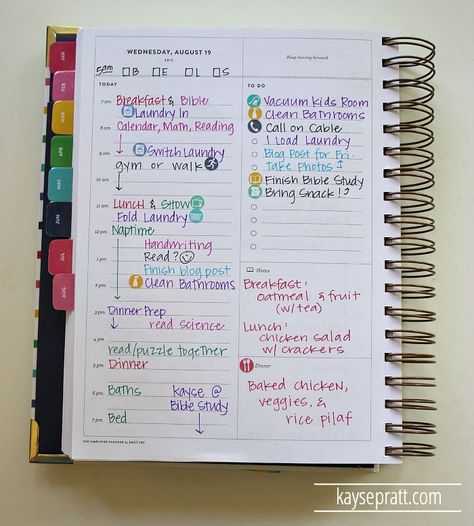 WEDNESDAY, AUGUST 19
2015
Keep moving forward.
5pm B E L S
TODAY
7 am Breakfast & Bible
Laundry In
8 am Calendar, Math, Reading
9 am Switch Laundry
gym or walk
10 am
11 am Lunch & Show
Fold Laundry
12 pm Naptime
Handwriting
1 pm Read?
Finish blog post
2 pm Clean Bathrooms
3 pm Dinner Prep
read science
4 pm
read/puzzle together
5 pm Dinner
6 pm Baths kayse @
Bible Study
7 pm Bed
THE SIMPLIFIED PLANNER by EMILY LEY
TO DO
Vacuum Kids Room
Clean Bathrooms
Call on Cable
1 Load Laundry
Blog Post for Fri.
Take Photos
Finish Bible Study
Bring Snack!
Notes
Breakfast:
oatmeal & fruit
(w/ tea)
Lunch:
chicken salad
w/ crackers
Dinner
Baked chicken,
veggies, &
rice pilaf
JAN
FEB
MAR
APR
MAY
JUN
JUL
AUG
kaysepratt.com